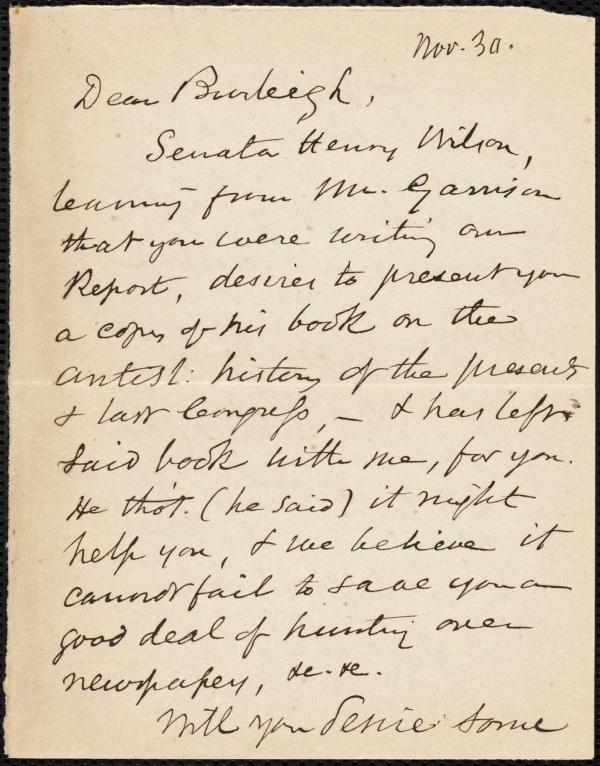 Nov. 30.
Dear Burleigh,
Senator Henry Wilson,
learning from Mr. Garrison
that you were writing our
Report, desires to present you
a copy of his book on the
antisl: history of the present
& last Congress, — & has left
said book with me, for you.
He tho't. (he said) it might
help you, & we believe it
cannot fail to save you a
good deal of hunting over
newspapers, &c. &c.
Will you desire some